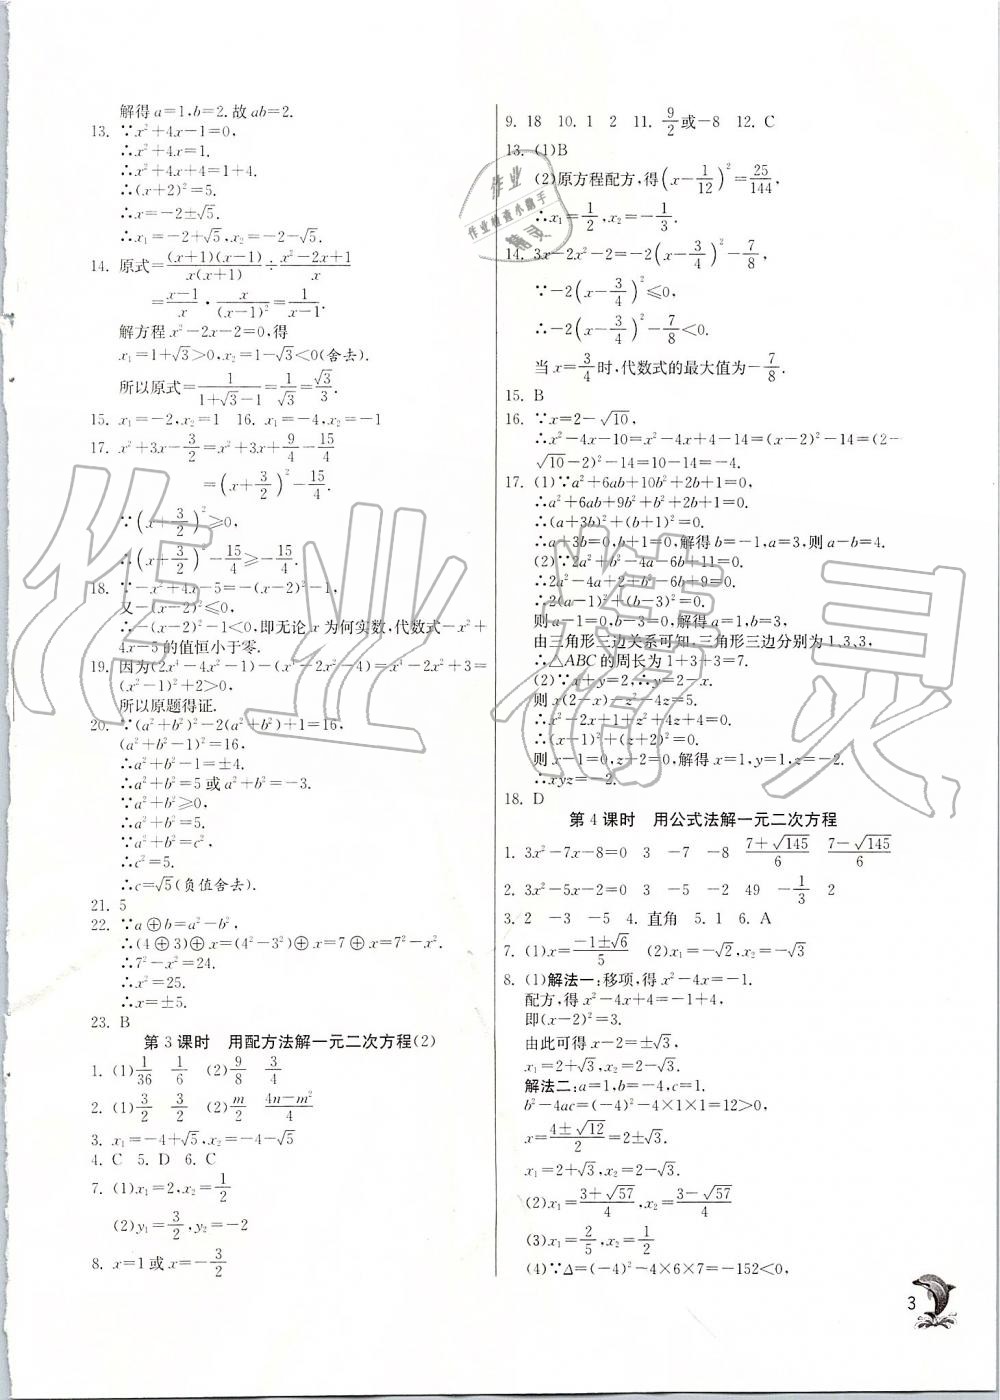 解得a=1,b=2.故ab=2.
13. ∵x²+4x-1=0,
∴x²+4x=1.
∴x²+4x+4=1+4.
∴(x+2)²=5.
∴x=-2±√5.
∴x₁=-2+√5,x₂=-2-√5.
14. 原式=(x+1)(x-1)/x(x+1)÷(x²-2x+1)/x
=(x-1)/x·x/(x-1)²=1/(x-1).
解方程x²-2x-2=0,得
x₁=1+√3>0,x₂=1-√3<0(舍去).
所以原式=1/(1+√3-1)=1/√3=√3/3.
15. x₁=-2,x₂=1 16. x₁=-4,x₂=-1
17. x²+3x-3/2=x²+3x+9/4-15/4
=(x+3/2)²-15/4.
∵(x+3/2)²≥0,
∴(x+3/2)²-15/4≥-15/4.
18. ∵-x²+4x-5=-(x-2)²-1,
又-(x-2)²≤0,
∴-(x-2)²-1<0,即无论x为何实数,代数式-x²+
4x-5的值恒小于零.
19. 因为(2x⁴-4x²-1)-(x⁴-2x²-4)=x⁴-2x²+3=
(x²-1)²+2>0,
所以原题得证.
20. ∵(a²+b²)²-2(a²+b²)+1=16,
(a²+b²-1)²=16,
∴a²+b²-1=±4.
∴a²+b²=5或a²+b²=-3.
∵a²+b²≥0,
∴a²+b²=5.
∵a²+b²=c²,
∴c²=5.
∴c=√5(负值舍去).
21. 5
22. ∵a⊕b=a²-b²,
∴(4⊕3)⊕x=(4²-3²)⊕x=7⊕x=7²-x².
∴7²-x²=24.
∴x²=25.
∴x=±5.
23. B
第3课时 用配方法解一元二次方程(2)
1. (1)1/36 1/6 (2)9/8 3/4
2. (1)3/2 3/2 (2)m/2 (4n-m²)/4
3. x₁=-4+√5,x₂=-4-√5
4. C 5. D 6. C
7. (1)x₁=2,x₂=1/2
(2)y₁=3/2,y₂=-2
8. x=1或x=-3/2
9. 18 10. 1 2 11. 9/2或-8 12. C
13. (1)B
(2)原方程配方,得(x-1/12)²=25/144,
∴x₁=1/2,x₂=-1/3.
14. 3x-2x²-2=-2(x-3/4)²-7/8,
∵-2(x-3/4)²≤0,
∴-2(x-3/4)²-7/8<0.
当x=3/4时,代数式的最大值为-7/8.
15. B
16. ∵x=2-√10,
∴x²-4x-10=x²-4x+4-14=(x-2)²-14=(2-
√10-2)²-14=10-14=-4.
17. (1)∵a²+6ab+10b²+2b+1=0,
∴a²+6ab+9b²+b²+2b+1=0.
∴(a+3b)²+(b+1)²=0.
∴a+3b=0,b+1=0,解得b=-1,a=3,则a-b=4.
(2)∵2a²+b²-4a-6b+11=0.
∴2a²-4a+2+b²-6b+9=0.
∴2(a-1)²+(b-3)²=0.
则a-1=0,b-3=0,解得a=1,b=3,
由三角形三边关系可知,三角形三边分别为1、3、3,
∴△ABC的周长为1+3+3=7.
(2)∵x+y=2,∴y=2-x.
则x(2-x)-z²-4z=5.
∴x²-2x+1+z²+4z+4=0.
∴(x-1)²+(z+2)²=0.
则x-1=0,z+2=0,解得x=1,y=1,z=-2.
∴xyz=-2.
18. D
第4课时 用公式法解一元二次方程
1. 3x²-7x-8=0 3 -7 -8 (7+√145)/6 (7-√145)/6
2. 3x²-5x-2=0 3 -5 -2 49 -1/3 2
3. 2 -3 -5 4. 直角 5. 1 6. A
7. (1)x=(-1±√6)/5 (2)x₁=-√2,x₂=-√3
8. (1)解法一:移项,得x²-4x=-1.
配方,得x²-4x+4=-1+4,
即(x-2)²=3.
由此可得x-2=±√3,
x₁=2+√3,x₂=2-√3.
解法二:a=1,b=-4,c=1.
b²-4ac=(-4)²-4×1×1=12>0,
x=(4±√12)/2=2±√3.
x₁=2+√3,x₂=2-√3.
(2)x₁=(3+√57)/4,x₂=(3-√57)/4
(3)x₁=2/5,x₂=1/3
(4)∵Δ=(-4)²-4×6×7=-152<0,
3
作业
作业检查小助手
精灵
作业精灵